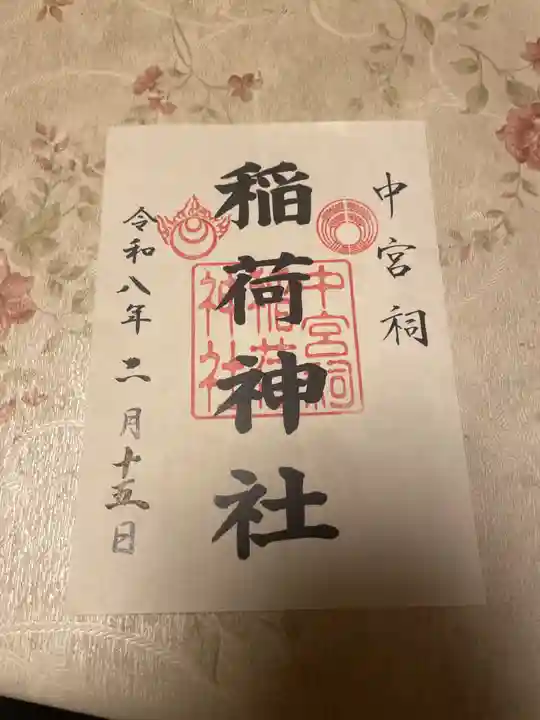 中宮祠
稲荷神社
令和八年二月十五日
中宮祠
稲荷
神社